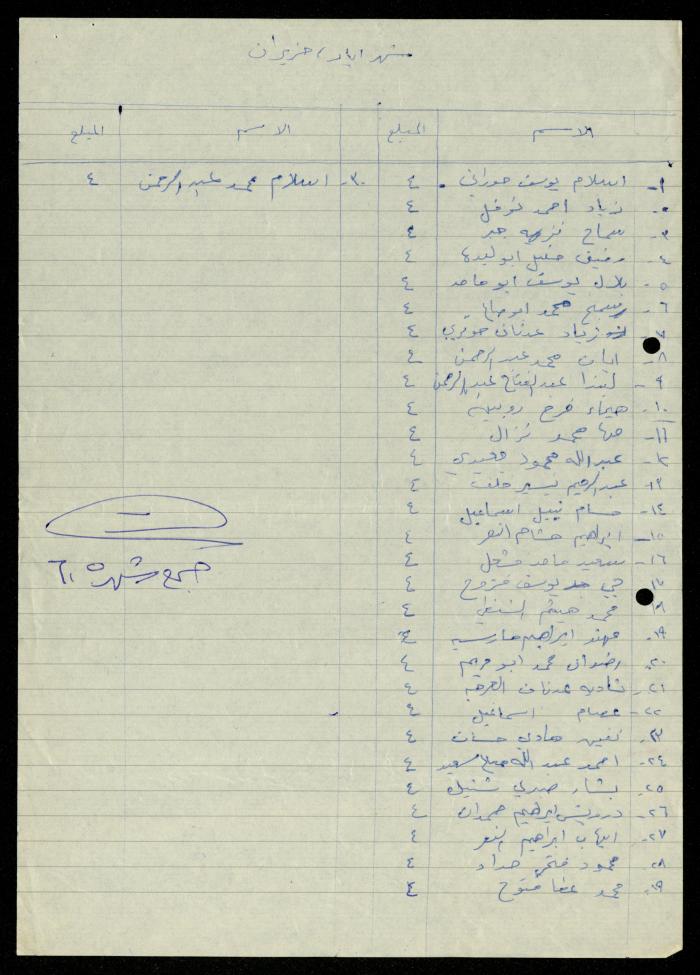 شهر ايار، حزيران
الاسم المبلغ الاسم المبلغ
١- اسلام يوسف حوراني ٤ ٣٠- اسلام محمد عبد الرحمن ٤
٢- زياد احمد نوفل ٤
٣- سماح نزيه جبر ٤
٤- رفيق خليل ابو ليدة ٤
٥- بلال يوسف ابو حامد ٤
٦- سميح محمد ابو صالح ٤
٧- زياد عدنان ٤
٨- ايمان محمد عبد الرحمن ٤
٩- ليندا عبد الفتاح عبد الرحمن ٤
١٠- هيماء فرح ٤
١١- مها محمد نزال ٤
١٢- عبد الله محمود ٤
١٣- عبد الرحيم يسير خلف ٤
١٤- حسام نبيل اسماعيل ٤
١٥- ابراهيم هشام النمر ٤
١٦- سعيد ماجد مشعل ٤
١٧- يوسف فتوح ٤
١٨- محمد هيثم الشنطي ٤
١٩- مهند ابراهيم ٤
٢٠- رضوان محمد ابو مريم ٤
٢١- شادية عدنان ٤
٢٢- عصام اسماعيل ٤
٢٣- هادي حسان ٤
٢٤- احمد عبد الله صالح سعيد ٤
٢٥- بشار صبري ٤
٢٦- درويش ابراهيم حمدان ٤
٢٧- ايهاب ابراهيم النمر ٤
٢٨- محمود فتحي حداد ٤
٢٩- محمد عطا فتوح ٤
جمع شهر ٥، ٦